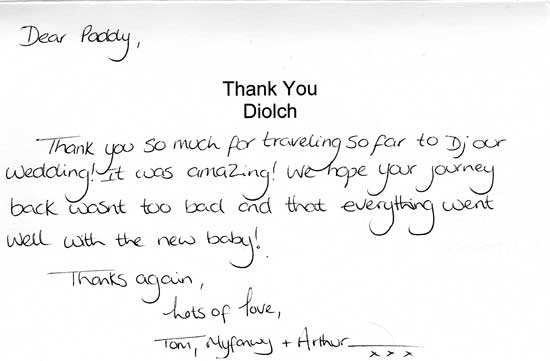 Dear Paddy,
Thank You
Diolch
Thank you so much for traveling so far to Dj our
wedding! It was amazing! We hope your journey
back wasnt too bad and that everything went
well with the new baby!
Thanks again,
Lots of love,
Tom, Myfanwy + Arthur
x x x